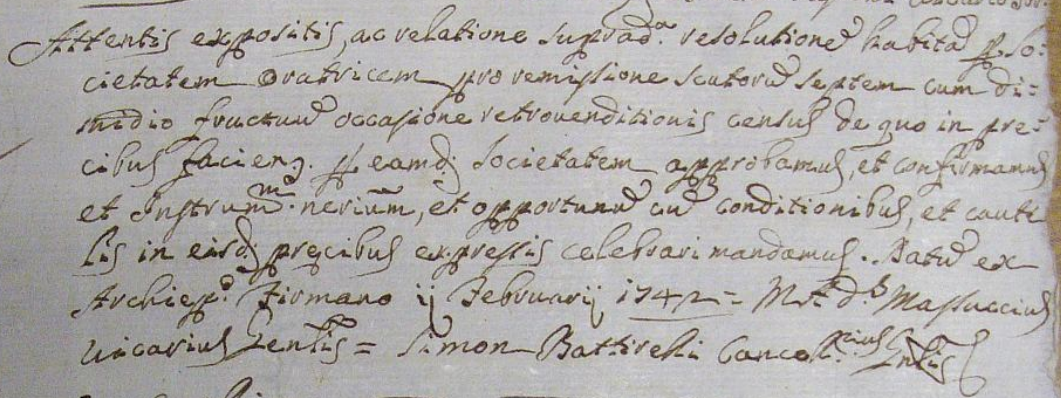 Attentis expositis, ac relatione suprad.ᵃ resolutione habita p. so:
cietatem oratricem pro remissione scutorũ septem cum di:
midio fructuũ occasione retrovenditionis census de quo in pre:
cibus facien. p. eamd. societatem approbamus, et confirmamus
et Instrum.ᵐ neriũm, et opportunũ cũ conditionibus, et caute
lis in eisd. precibus expressis celebrari mandamus. Datũ ex
Archiep.º Firmano ij Februarij 1742 = Massuccius
Vicarius Gen̄lis = Simon Battirelli Cancell.ʳⁱᵘˢ